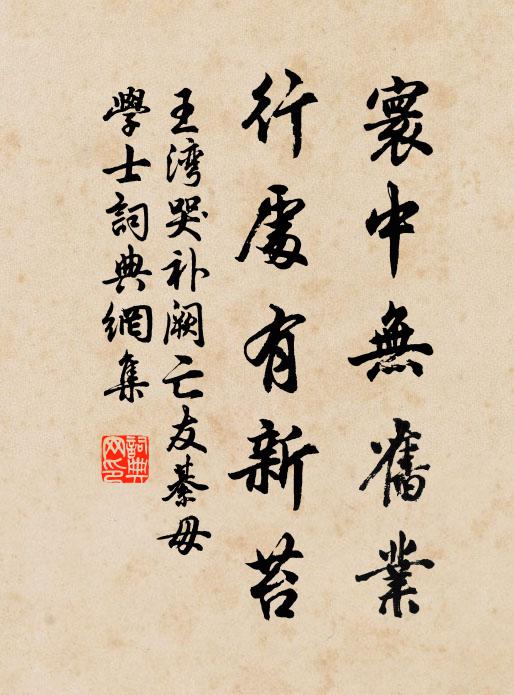 寰中無舊業
行處有新苔
王湾哭补阙亡友綦毋
學士詞典網集
詞典网印